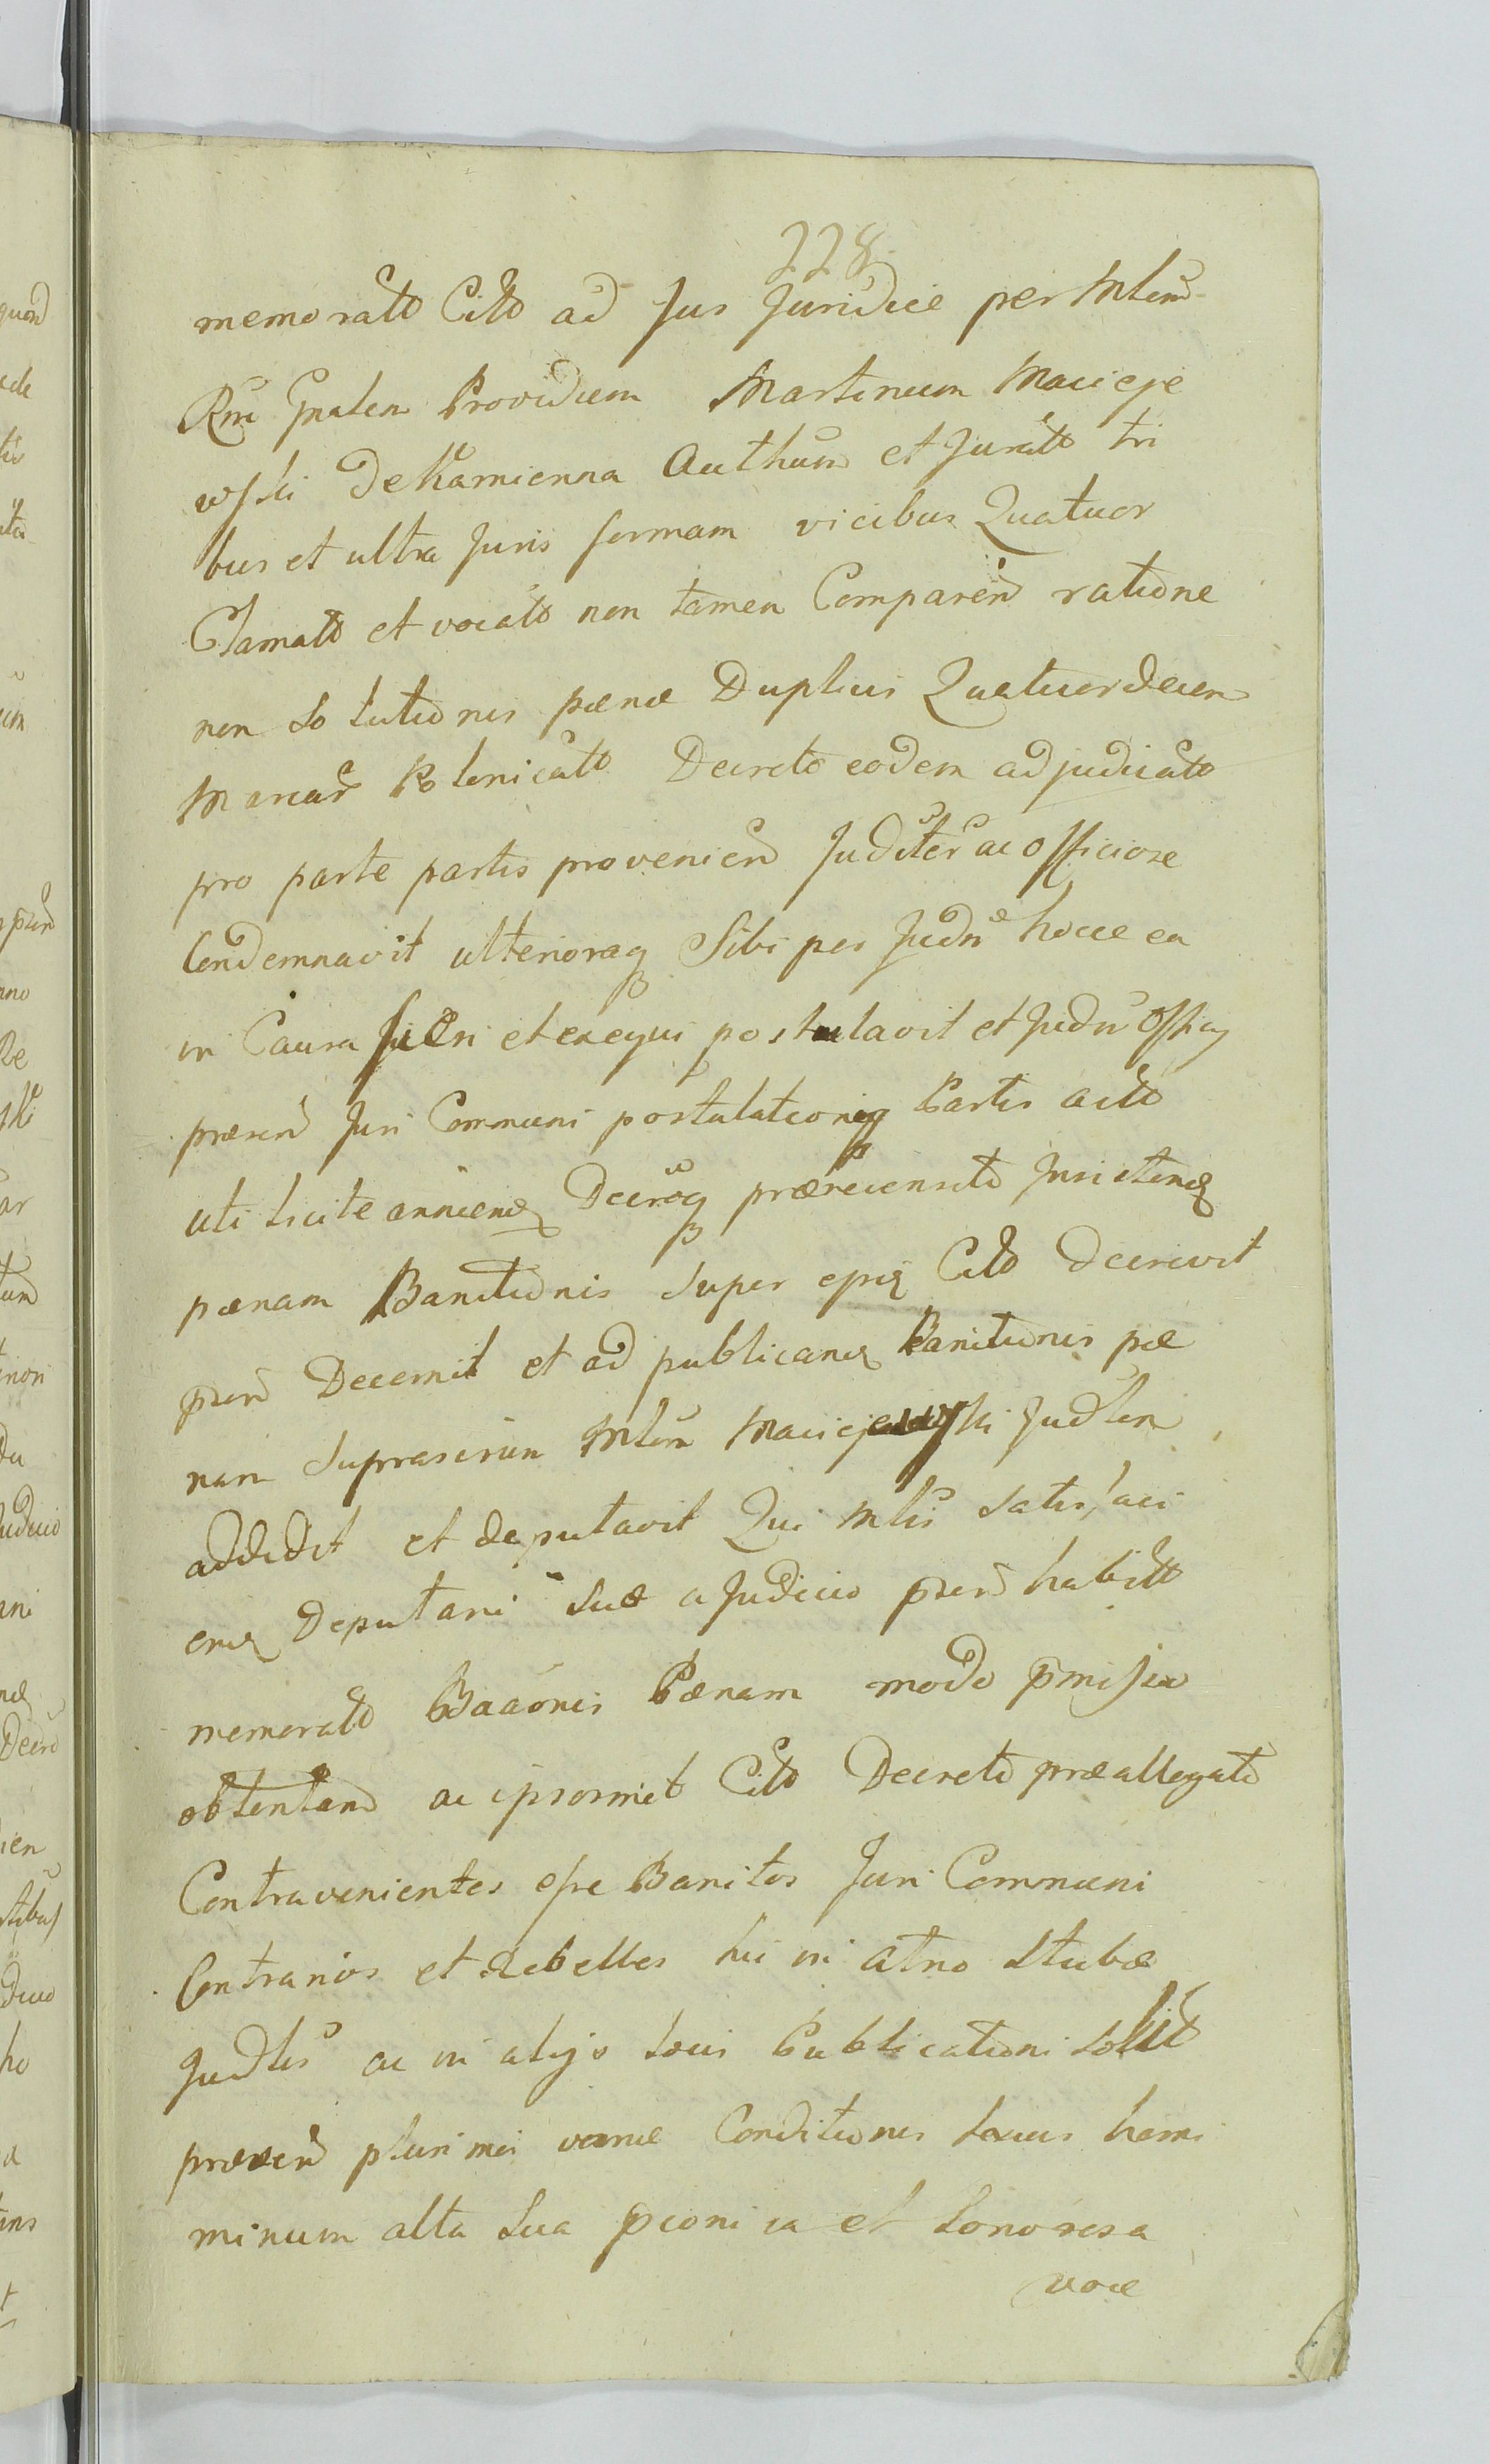 228
memorato Cito ad Jus Juridice per Mlem
Rni Gnalem Providum Martinum Macieje
wski de Kamienna Authum et Jurato tri
bus et ultra Juris formam vicibus Quatuor
Clamato et vocato non tamen Comparen ratione
non Solutionis pænæ Duplicis Quatuordecem
Marcar Polonicalo Decreto eodem adjudicato
pro parte partis provenien Juditer ac officiose
Condemnavit ulterioraq Sibi per Judm hocce ea
in Causa fieri et exequi postulavit et Judm Offiy
præsen Juri Communi postulationiq Partis acto
uti licite annuen Decroq prærecensito Insisten
pænam Banitionis Super epis Cito decrevit
pren Decernit et ad publican Banitionis pæ
nam Suprascrum Mlem Maciejewski Judlem
addidit et deputavit Qui Mlis satisfaci
en Deputani Suæ a Judicio pren habito
memorato Baaonis Pænam modo pmisso
obtentam ac ipsosmet Cito Decreto præallegato
Contravenientes esse Banitos Juri Communi
Contrarios et Rebelles hic in atrio Stubæ
Judlis ac in alijs Locis Publicationi solit
præsen plurimor variæ Conditionis sexus homi
minum alta Sua pconica et Sonorosa
voce